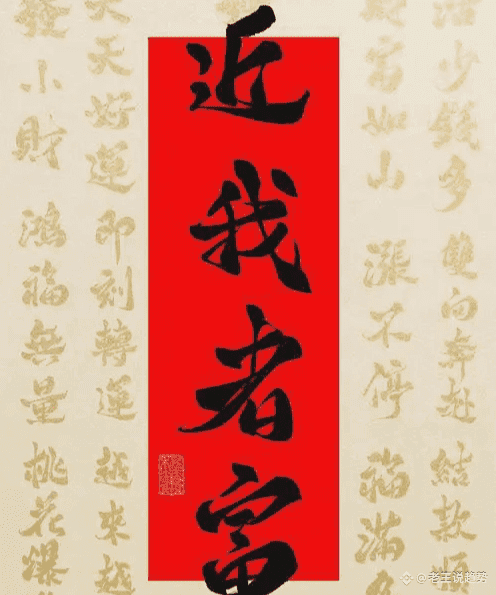 活少錢多 雙向奔赴 結款順
財富如山 漲不停 福滿
近我者富
天天好運 即刻轉運 越來越
發小財 鴻福無量 桃花爆
@老王说趋势